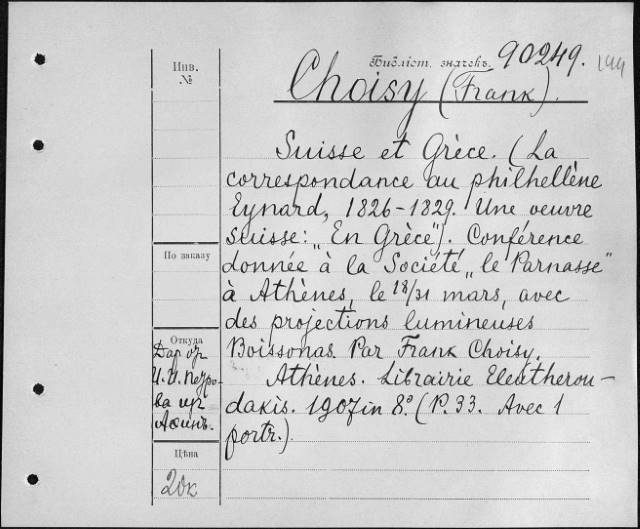 Инв.
№
Библіот. значекъ 90249. 199
Choisy (Frank).
Suisse et Grèce. (La
correspondance au philhellène
Eynard, 1826-1829. Une oeuvre
suisse: „En Grèce"). Conférence
donnée à la Société „le Parnasse"
à Athènes, le 18/31 mars, avec
des projections lumineuses
Boissonas. Par Frank Choisy.
Athènes. Librairie Eleutherou-
dakis. 1907 in 8.° (P. 33. Avec 1
portr.)
По заказу
Откуда
Дар от
И.И. Петро-
ва из
Аѳинъ.
Цѣна
20к